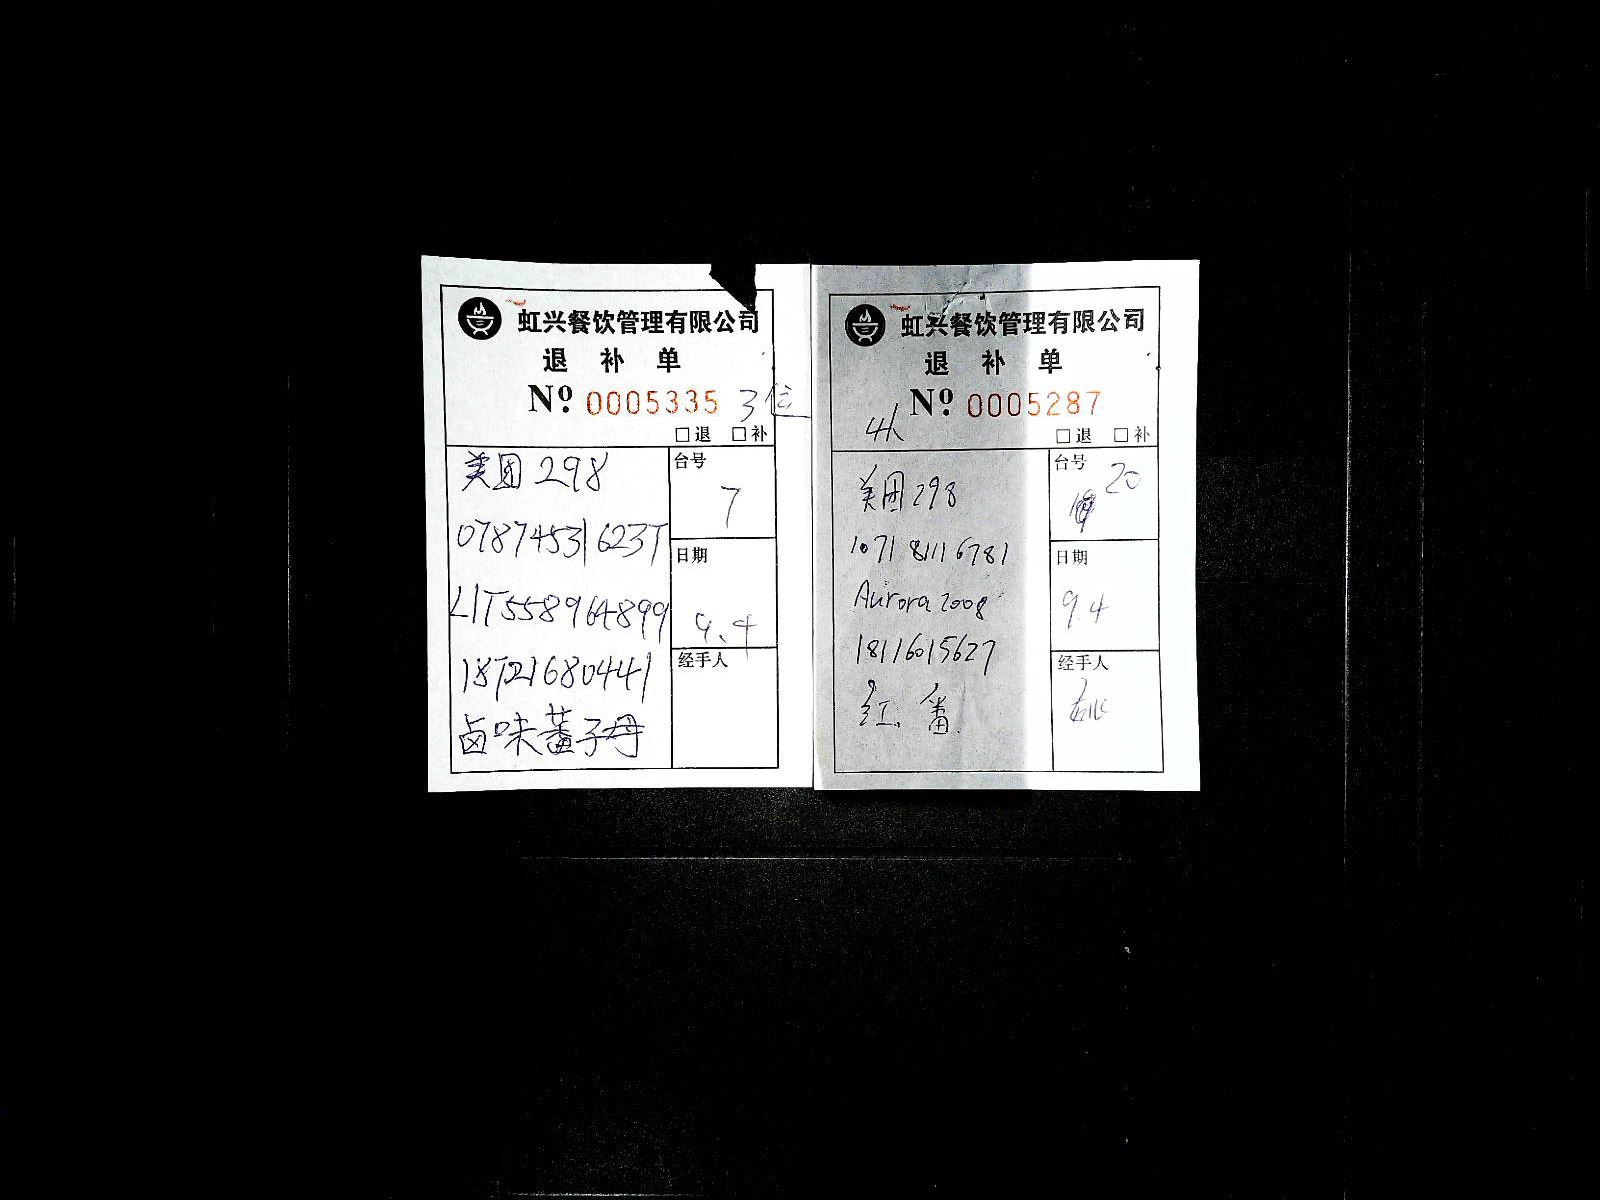 虹兴餐饮管理有限公司
退 补 单
Nº 0005335 3位
□退 □补
美团 298
台号
7
078745316237
日期
9.4
LIT558964899
经手人
18721680441
卤味 子母
虹兴餐饮管理有限公司
退 补 单
Nº 0005287
4人
□退 □补
美团 298
台号
20
1071 8111 6781
日期
9.4
Aurora2008
18116015627
经手人
红、番